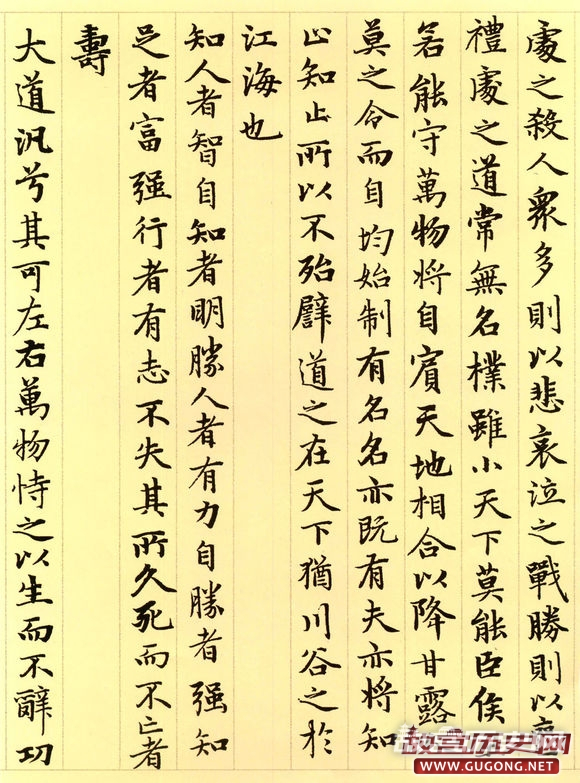 處之殺人眾多則以悲哀泣之戰勝則以喪
禮處之道常無名樸雖小天下莫能臣侯
若能守萬物將自賓天地相合以降甘露
莫之令而自均始制有名名亦既有夫亦將知
止知止所以不殆譬道之在天下猶川谷之於
江海也
知人者智自知者明勝人者有力自勝者强知
足者富强行者有志不失其所久死而不亡者
壽
大道汎兮其可左右萬物恃之以生而不辭功
故宫历史网
WWW.GUGONG.NET